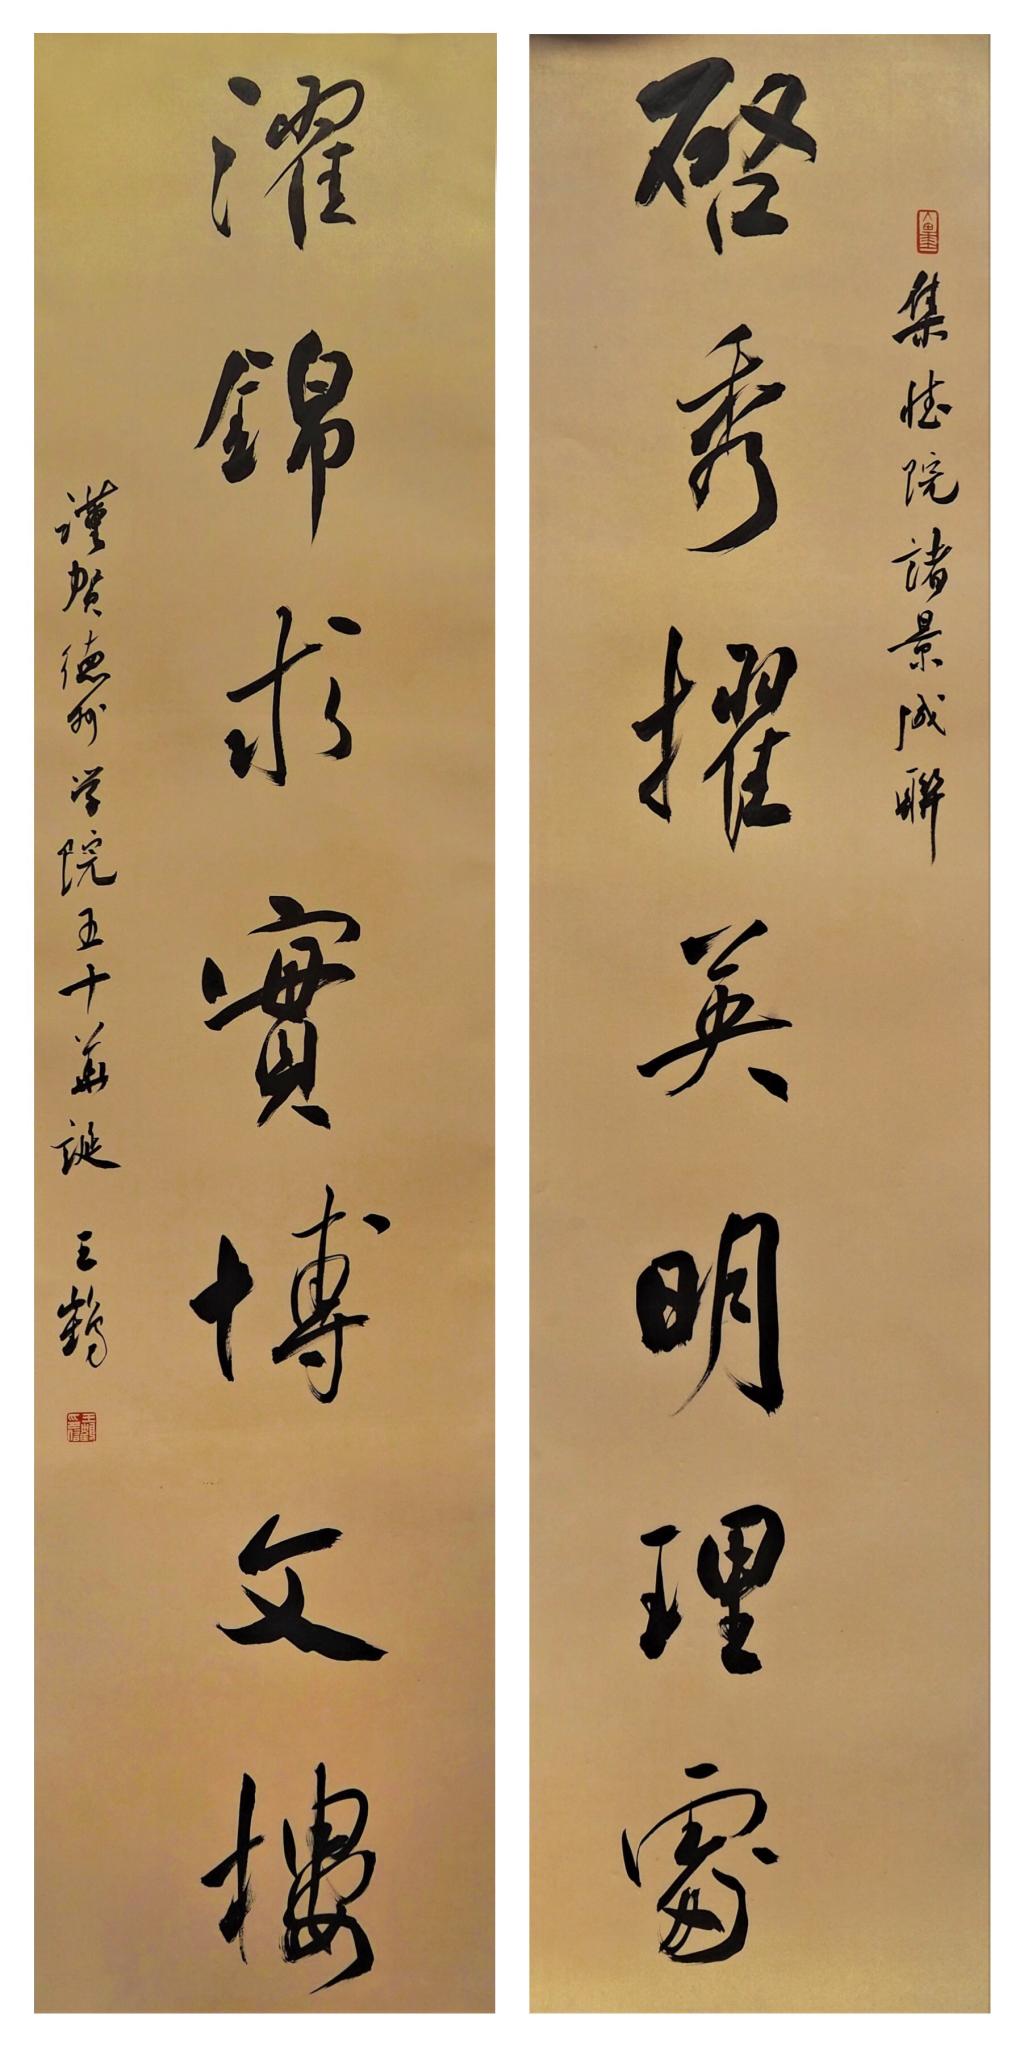 集德院諸景成聯
啓秀擢英明理處
濯錦求實博文樓
謹賀德州学院五十華誕 王鶴